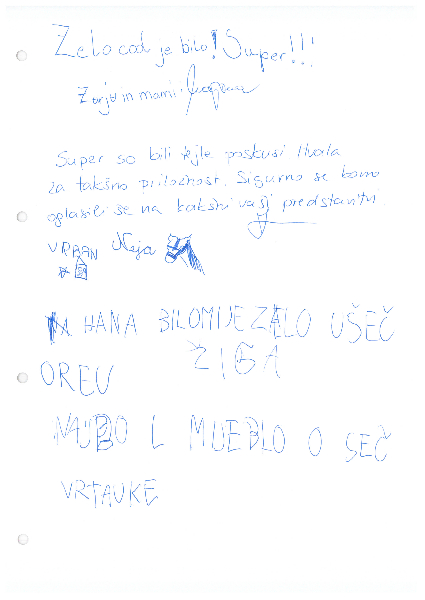 Zelo cool je bilo! Super!!!
Zarja in mami
Super so bili tejle poskusi Hvala
za takšno priložnost. Sigurno se bomo
oglasili še na kakšni vaši predstavitvi.
VRBAN Neja
HANA BILOMIJE ZALO UŠEČ
ŽIGA
OREU
NAJBO L MIJEBLO O SEČ
VRTAUKE